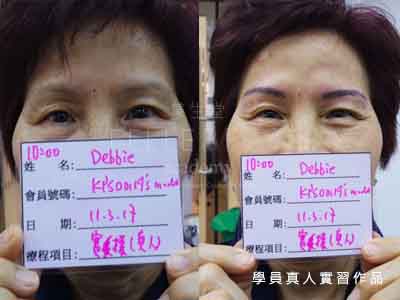 10:00
姓 名: Debbie
會員號碼: KPS00119's model
日 期: 11.3.17
療程項目:
10:00
姓 名: Debbie
會員號碼: KPS00119's model
日 期: 11.3.17
療程項目:
學員真人實習作品